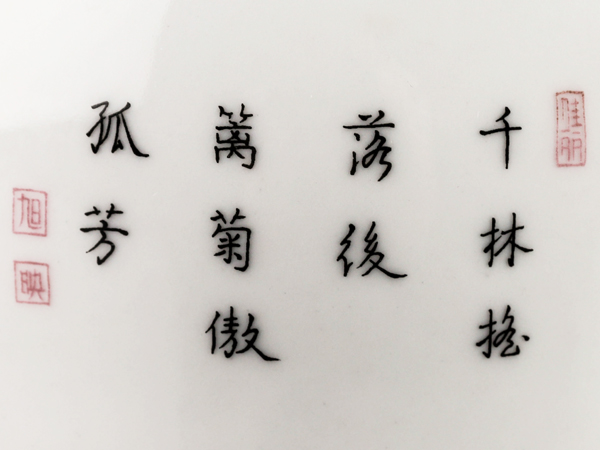 佳丽
千林搖
落後
篱菊傲
孤芳
旭
映